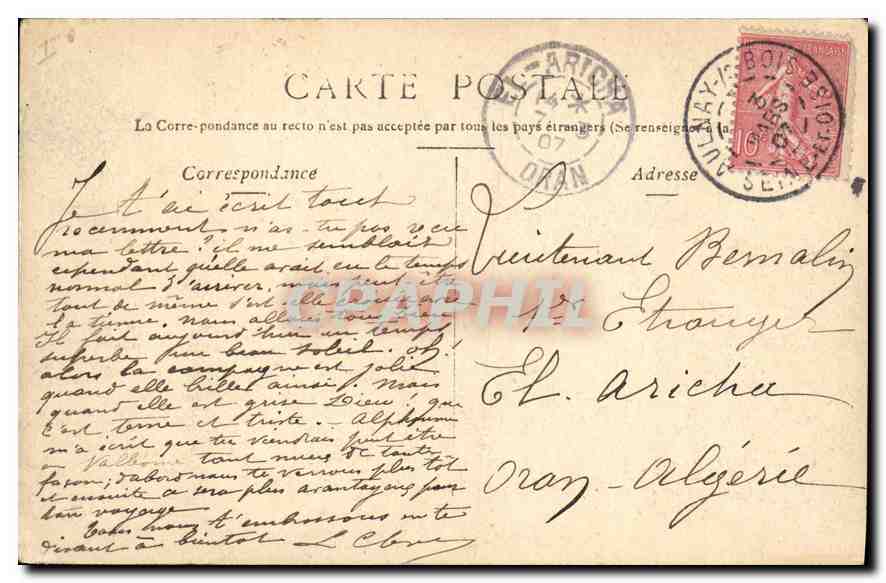 CARTE POSTALE
La Corre-pondance au recto n'est pas acceptée par tous les pays étrangers (Se renseigner à la
Correspondance
Je t'ai écrit tout
recemment n'as-tu pas recu
ma lettre? il me semblait
cependant qu'elle avait eu le temps
normal d'arriver, mais peut être
tout de même s'est elle
la tienne. nous allons tous bien
Il fait aujourd'hui un temps
superbe pur beau soleil. oh!
alors la campagne est jolie
quand elle brille ainsi. Mais
quand elle est grise Dieu! que
c'est terne et triste. Alphonse
m'a écrit que tu viendrais peut être
à tant mieux de toute
façon; d'abord nous te verrons plus tôt
et ensuite ce sera plus avantageux pour
ton voyage
Tous nous t'embrassons en te
disant à bientôt L
Adresse
Lieutenant Bernalin
1er Etranger
El. Aricha
Oran - Algérie
EL-ARICHA
07
ORAN
AULNAY-LES-BOIS
SEINE-ET-OISE
MARS
07
10
CRAPHIL